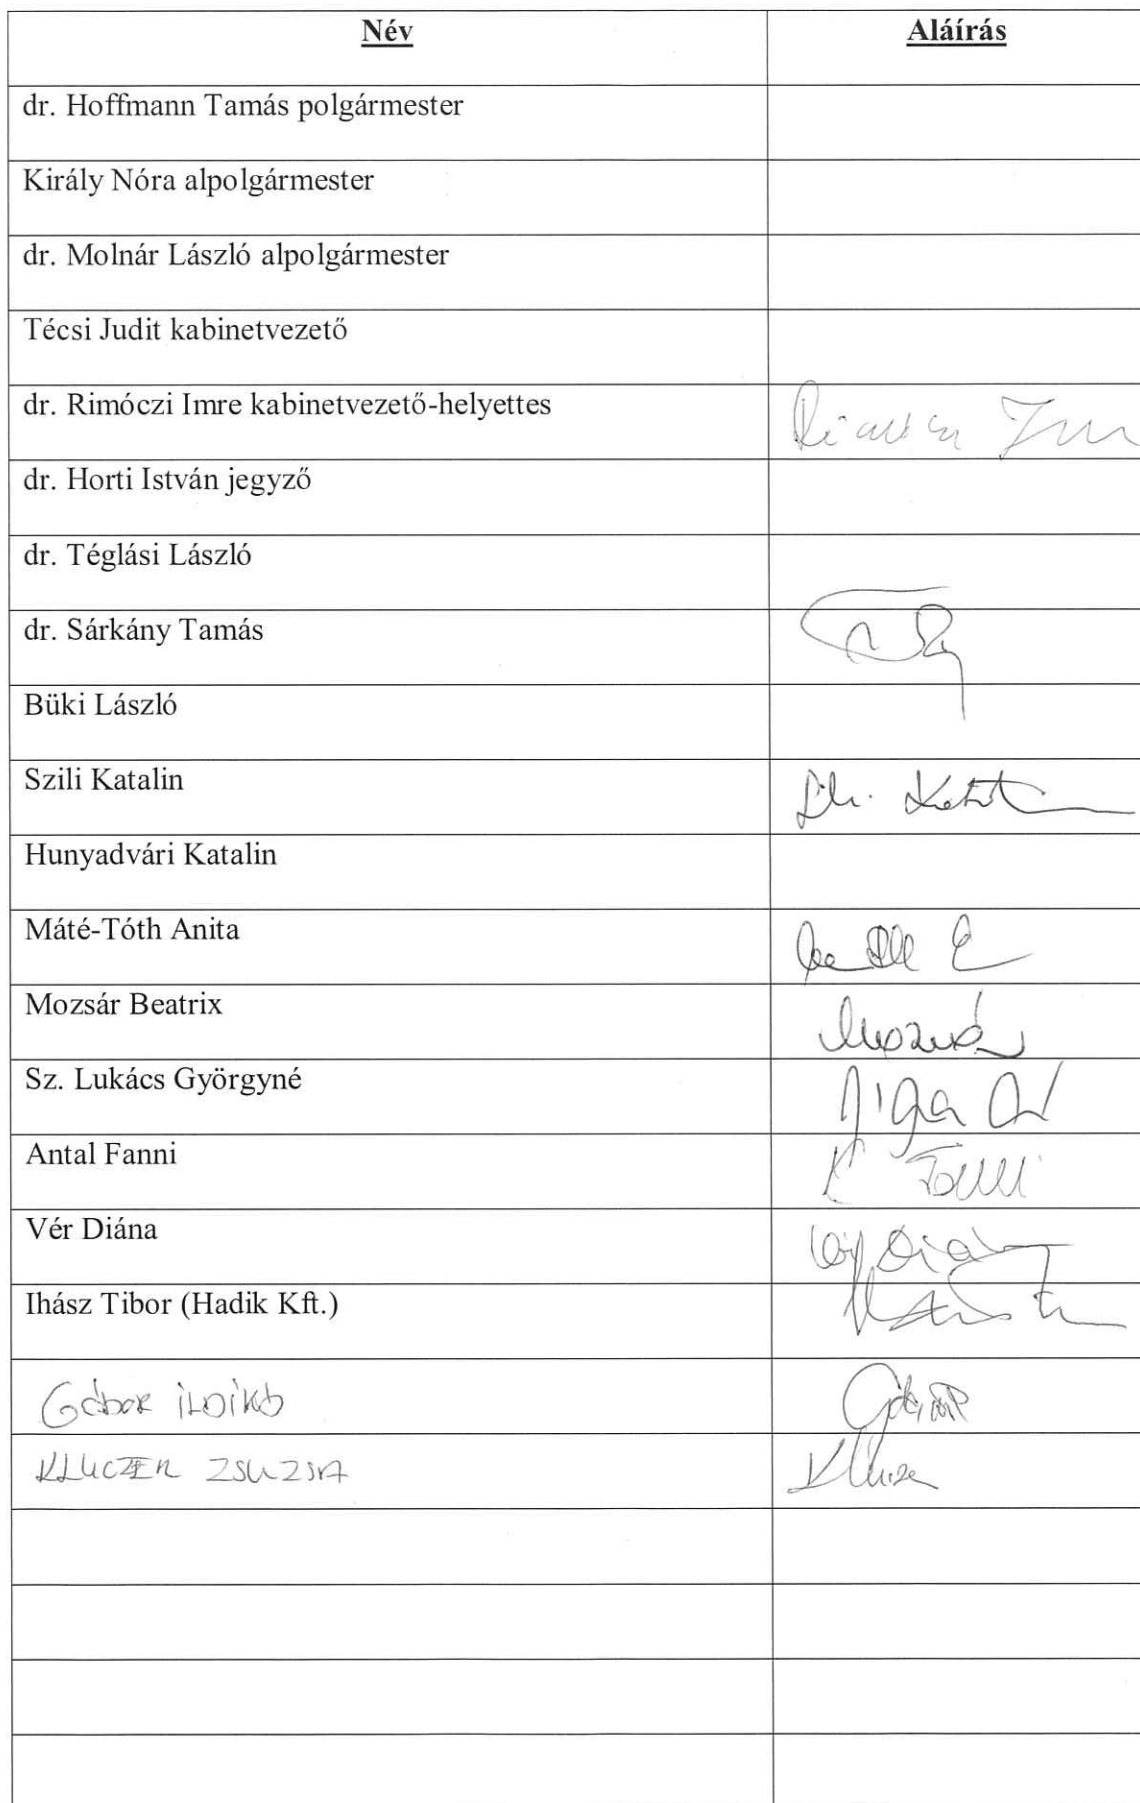 Név Aláírás
dr. Hoffmann Tamás polgármester
Király Nóra alpolgármester
dr. Molnár László alpolgármester
Técsi Judit kabinetvezető
dr. Rimóczi Imre kabinetvezető-helyettes
dr. Horti István jegyző
dr. Téglási László
dr. Sárkány Tamás
Büki László
Szili Katalin
Hunyadvári Katalin
Máté-Tóth Anita
Mozsár Beatrix
Sz. Lukács Györgyné
Antal Fanni
Vér Diána
Ihász Tibor (Hadik Kft.)
Gábor ILDIKÓ
KLUCZER ZSUZSA